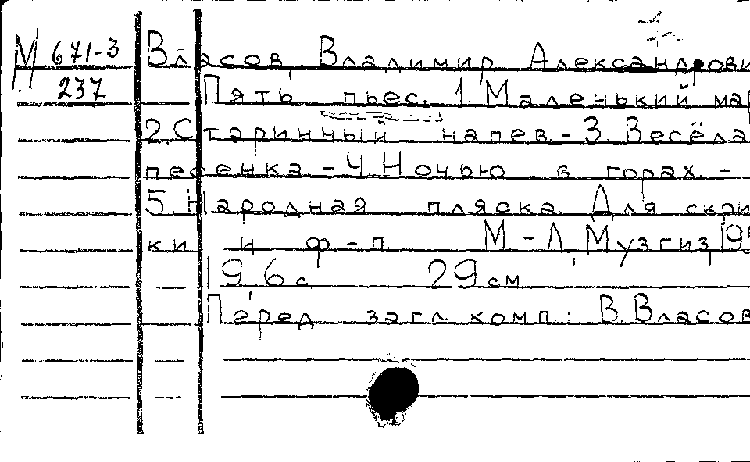 М 671-3
237
Власов, Владимир Александрови
Пять пьес. 1. Маленький мар
2. Старинный напев. - 3. Весёла
песенка - 4. Ночью в горах. -
5. Народная пляска. Для скри
ки и ф-п М-Л, Музгиз, 19
19, 6 с 29 см
Перед загл комп: В. Власов